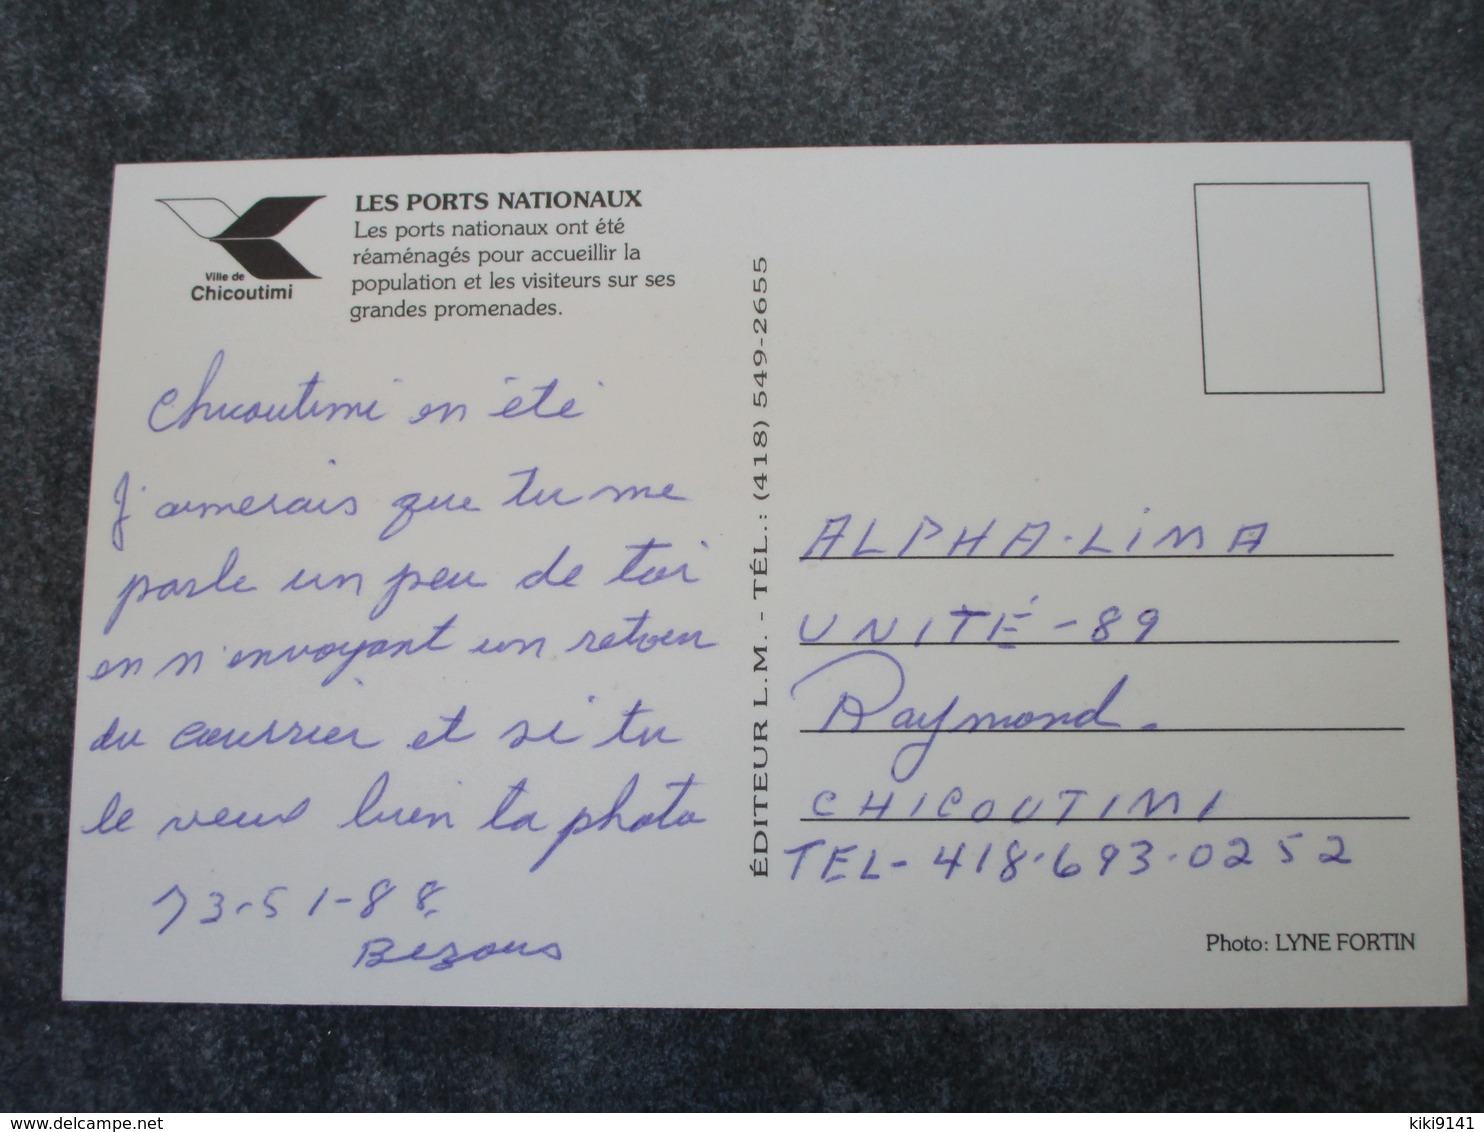 LES PORTS NATIONAUX
Les ports nationaux ont été
réaménagés pour accueillir la
population et les visiteurs sur ses
grandes promenades.
Ville de
Chicoutimi
Chicoutimi en été
J'aimerais que tu me
parle un peu de toi
en m'envoyant un retour
du courrier et si tu
le veux bien ta photo
73-51-88.
Bezous
ÉDITEUR L.M. - TÉL.: (418) 549-2655
ALPHA-LIMA
UNITÉ-89
Raymond.
CHICOUTIMI
TEL-418-693-0252
Photo: LYNE FORTIN
www.delcampe.net
kiki9141